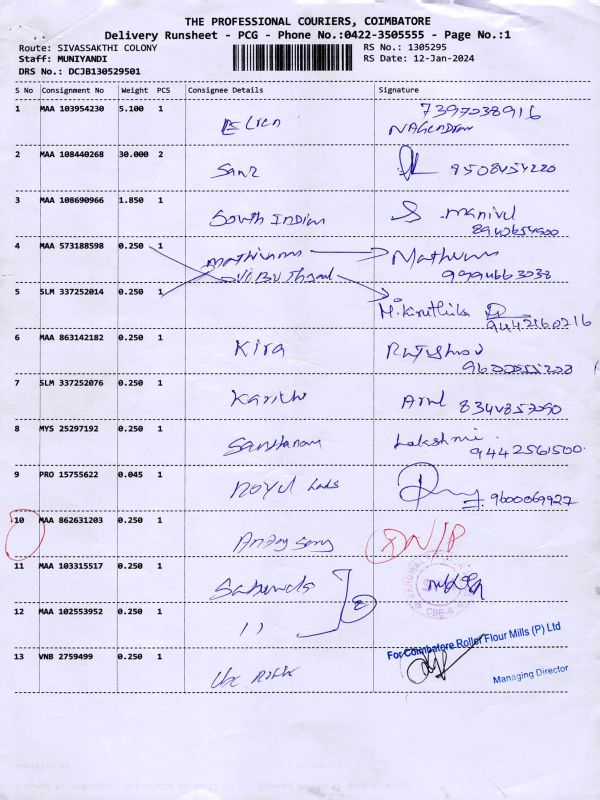 THE PROFESSIONAL COURIERS, COIMBATORE
Delivery Runsheet - PCG - Phone No.:0422-3505555 - Page No.:1
Route: SIVASSAKTHI COLONY RS No.: 1305295
Staff: MUNIYANDI RS Date: 12-Jan-2024
DRS No.: DCJB130529501
S No Consignment No Weight PCS Consignee Details Signature
1 MAA 103954230 5.100 1 7397038916
NAGENDRAN
2 MAA 108440268 30.000 2 9508454220
3 MAA 108690966 1.850 1 South Indian S. Manivel
8940654900
4 MAA 573188598 0.250 1 Mathivanan
9994663038
5 SLM 337252014 0.250 1 M. Kiruthika
9442160216
6 MAA 863142182 0.250 1 Kira
7 SLM 337252076 0.250 1 Arul 8344857290
8 MYS 25297192 0.250 1 Santhanam Lakshmi.
9442561500.
9 PRO 15755622 0.045 1 Noyul Lads 9600069927
10 MAA 862631203 0.250 1
11 MAA 103315517 0.250 1
12 MAA 102553952 0.250 1 11
CBE-6
For Coimbatore Roller Flour Mills (P) Ltd
13 VNB 2759499 0.250 1
Managing Director